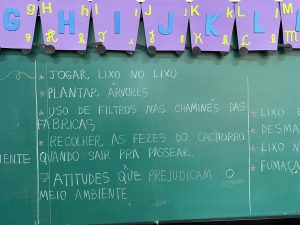 G g H h I i J j K k L l
* JOGAR LIXO NO LIXO
* PLANTAR ÁRVORES
* USO DE FILTROS NAS CHAMINÉS DAS
FÁBRICAS
* RECOLHER AS FEZES DO CACHORRO
QUANDO SAIR PRA PASSEAR.
* ATITUDES QUE PREJUDICAM O
MEIO AMBIENTE
IENTE
* LIXO
* DESMA
* LIXO N
* FUMAÇA